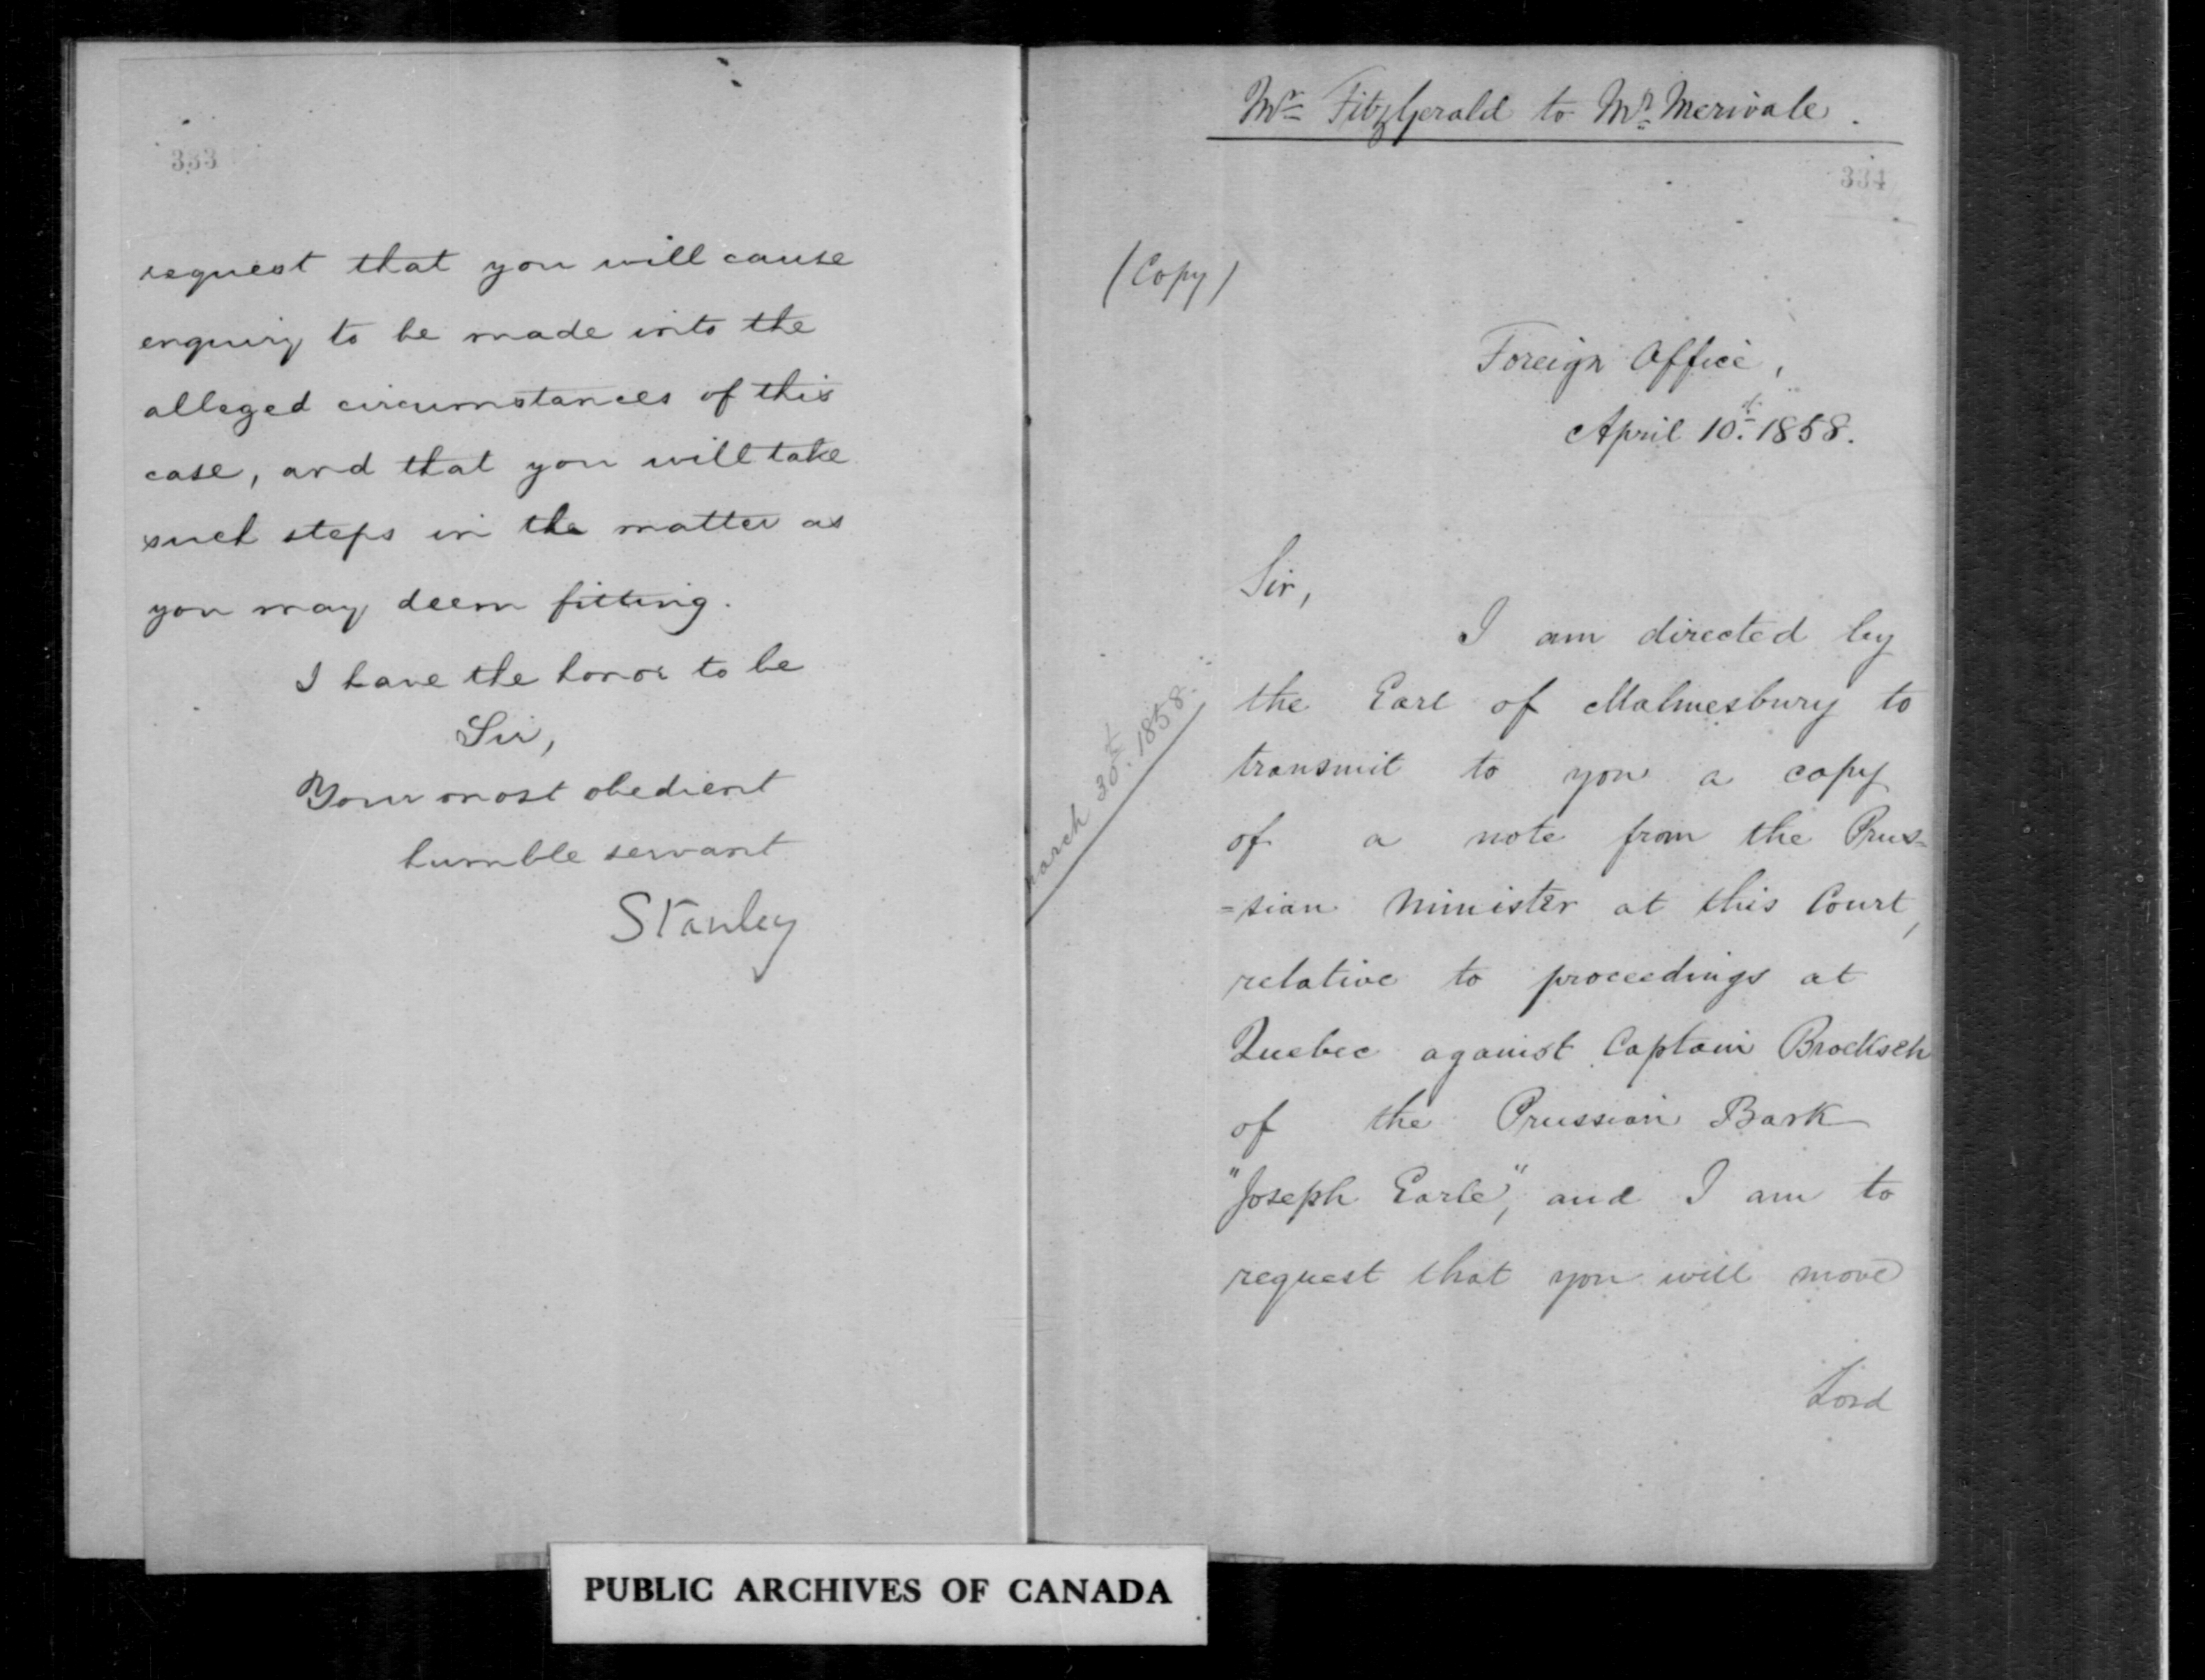 333
request that you will cause
enquiry to be made into the
alleged circumstances of this
case, and that you will take
such steps in the matter as
you may deem fitting.
I have the honor to be
Sir,
Your most obedient
humble servant
Stanley
Mr Fitzgerald to Mr. Merivale.
334
(Copy)
Foreign Office,
April 10th. 1858.
Sir,
I am directed by
the Earl of Malmesbury to
transmit to you a copy
of a note from the Prus=
=sian Minister at this Court,
March 30th. 1858.
relative to proceedings at
Quebec against Captain Brocksch
of the Prussian Bark
"Joseph Earle", and I am to
request that you will move
Lord
PUBLIC ARCHIVES OF CANADA